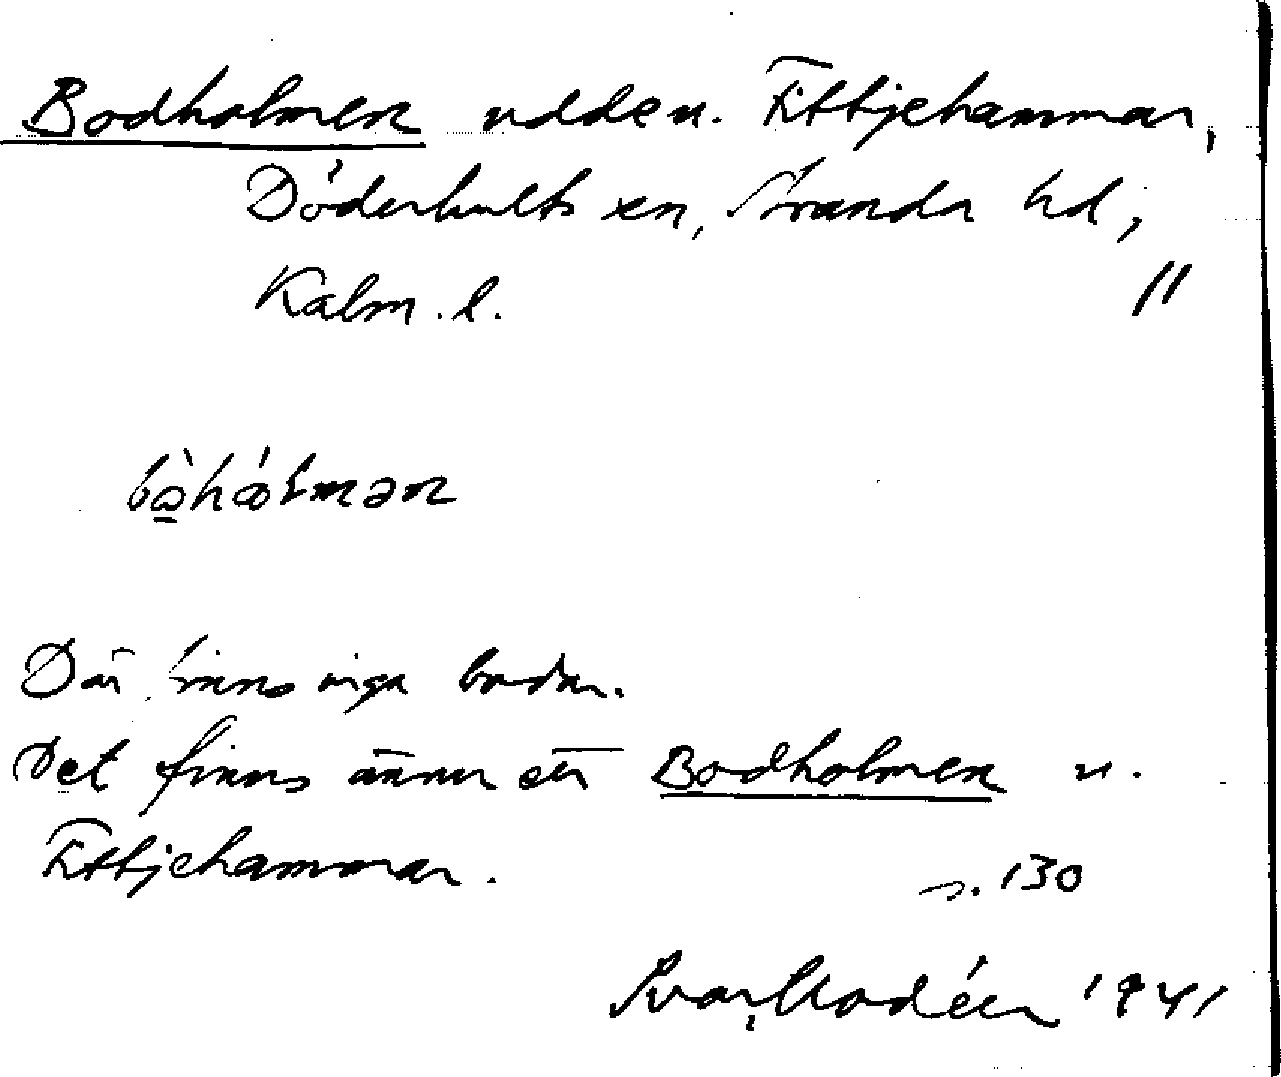 Bodholmen udde u. Fittjehammar,
Döderhults sn, Stranda hd,
Kalm. l. //
Där finns inga bodar.
Det finns ännu en Bodholmen u.
Fittjehammar.
s. 130
Ivar Modéer 1941